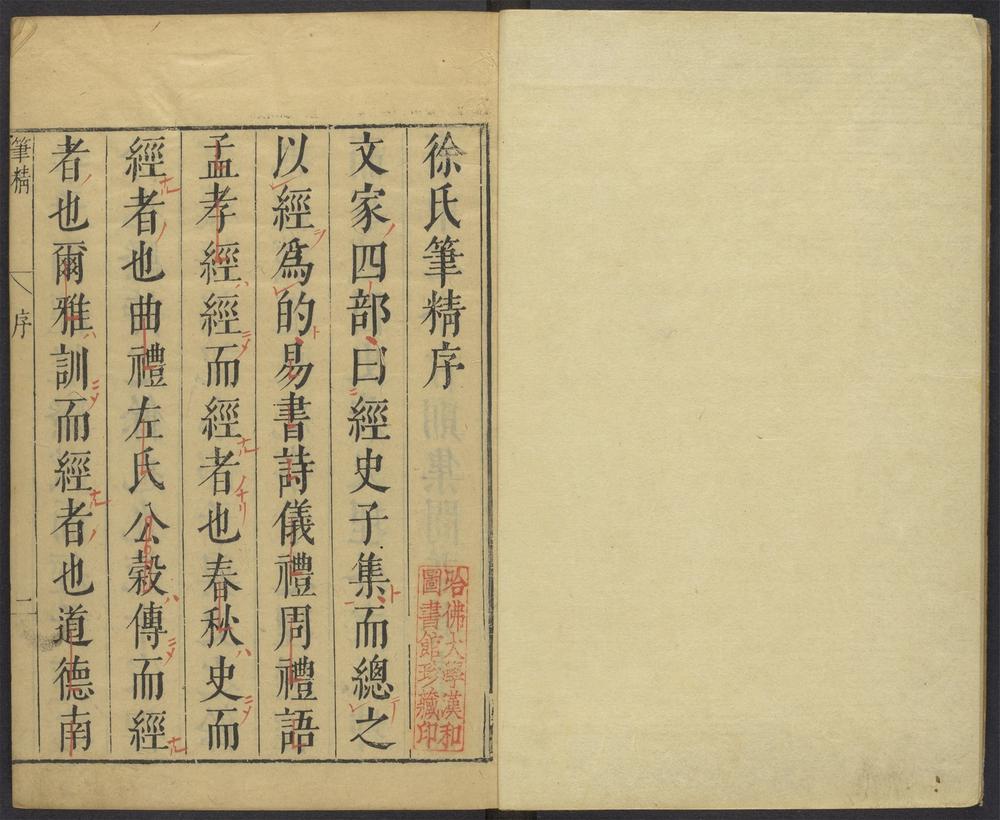 徐氏筆精序
文家四部曰經史子集而總之
以經爲的易書詩儀禮周禮語
孟孝經經而經者也春秋史而
經者也曲禮左氏公穀傳而經
者也爾雅訓而經者也道德南
筆精
序
哈佛大學漢和
圖書館珍藏印